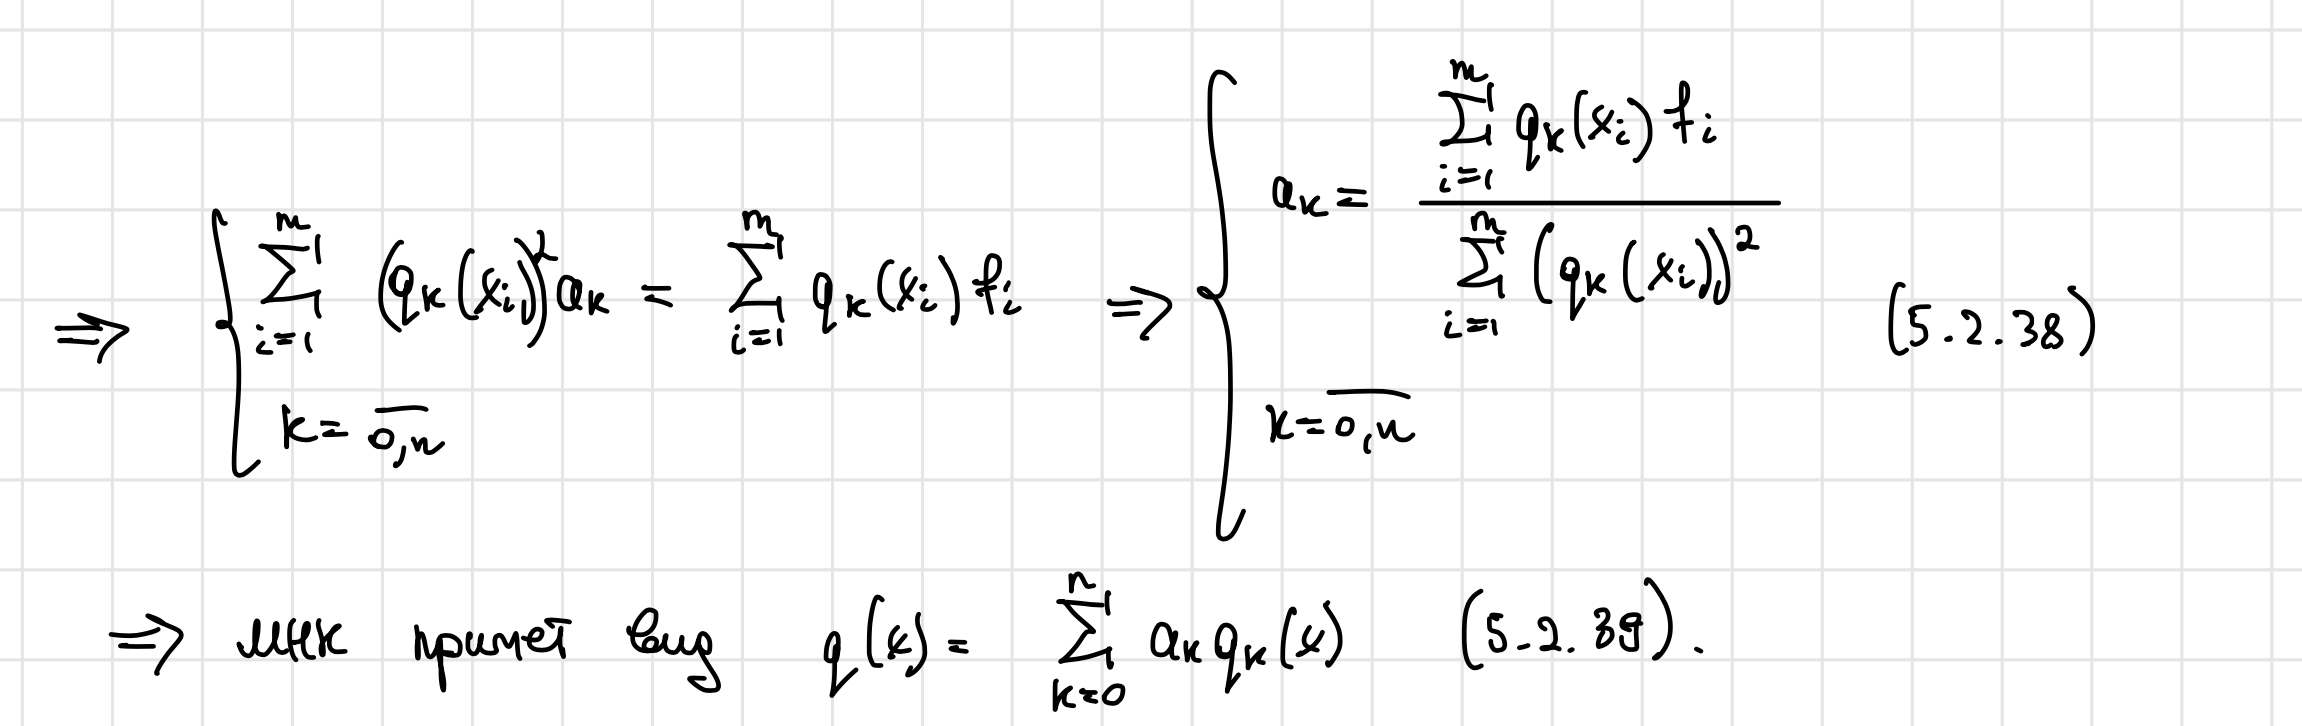 ⇒ { \sum_{i=1}^{m} (q_k(x_i))^2 a_k = \sum_{i=1}^{m} q_k(x_i) f_i, k = \overline{0,n} ⇒ { a_k = \frac{\sum_{i=1}^{m} q_k(x_i) f_i}{\sum_{i=1}^{m} (q_k(x_i))^2}, k = \overline{0,n} (5.2.38)
⇒ мнк примет вид q(x) = \sum_{k=0}^{n} a_k q_k(x) (5.2.39).